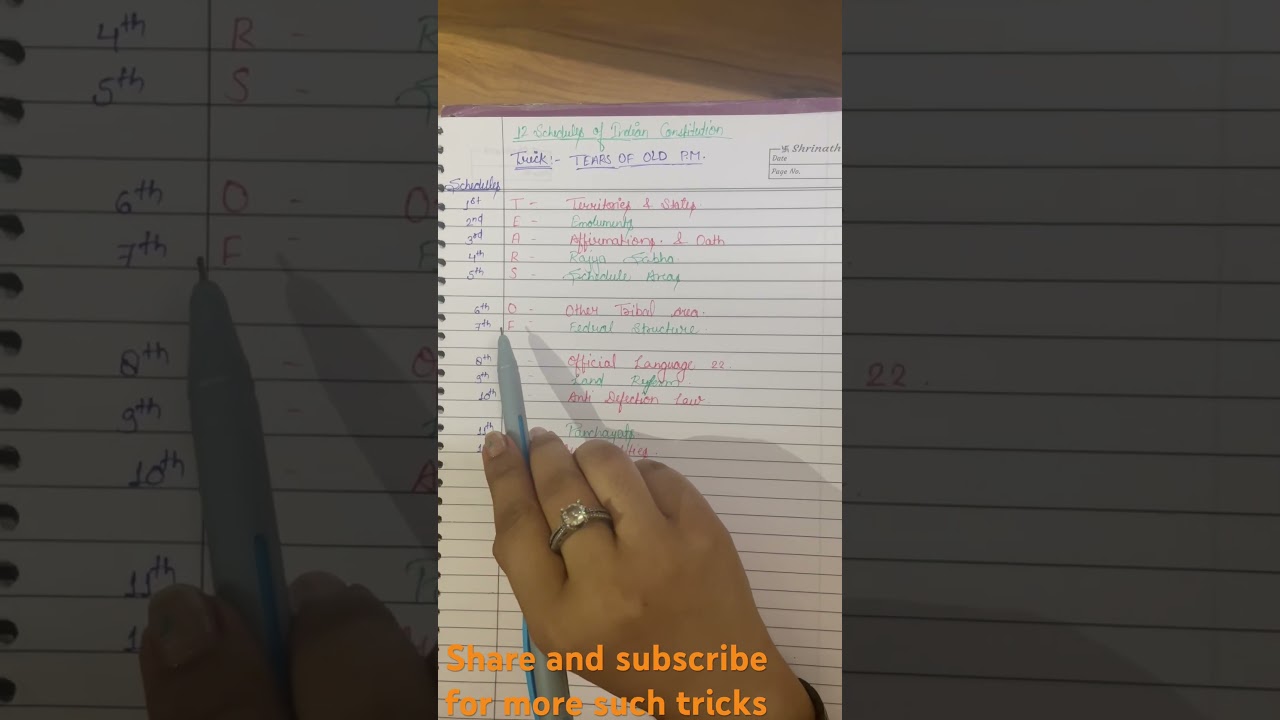 12 Schedules of Indian Constitution
Trick:- TEARS OF OLD P.M.
Shrinath
Date
Page No.
Schedules
1st T - Territories & States
2nd E - Emoluments
3rd A - Affirmations & Oath
4th R - Rajya Sabha
5th S - Schedule Areas
6th O - Other Tribal Area.
7th F - Fedral Structure.
8th - Official Language 22.
9th - Land Reform.
10th - Anti Defection Law
11th Panchayats
Share and subscribe
for more such tricks